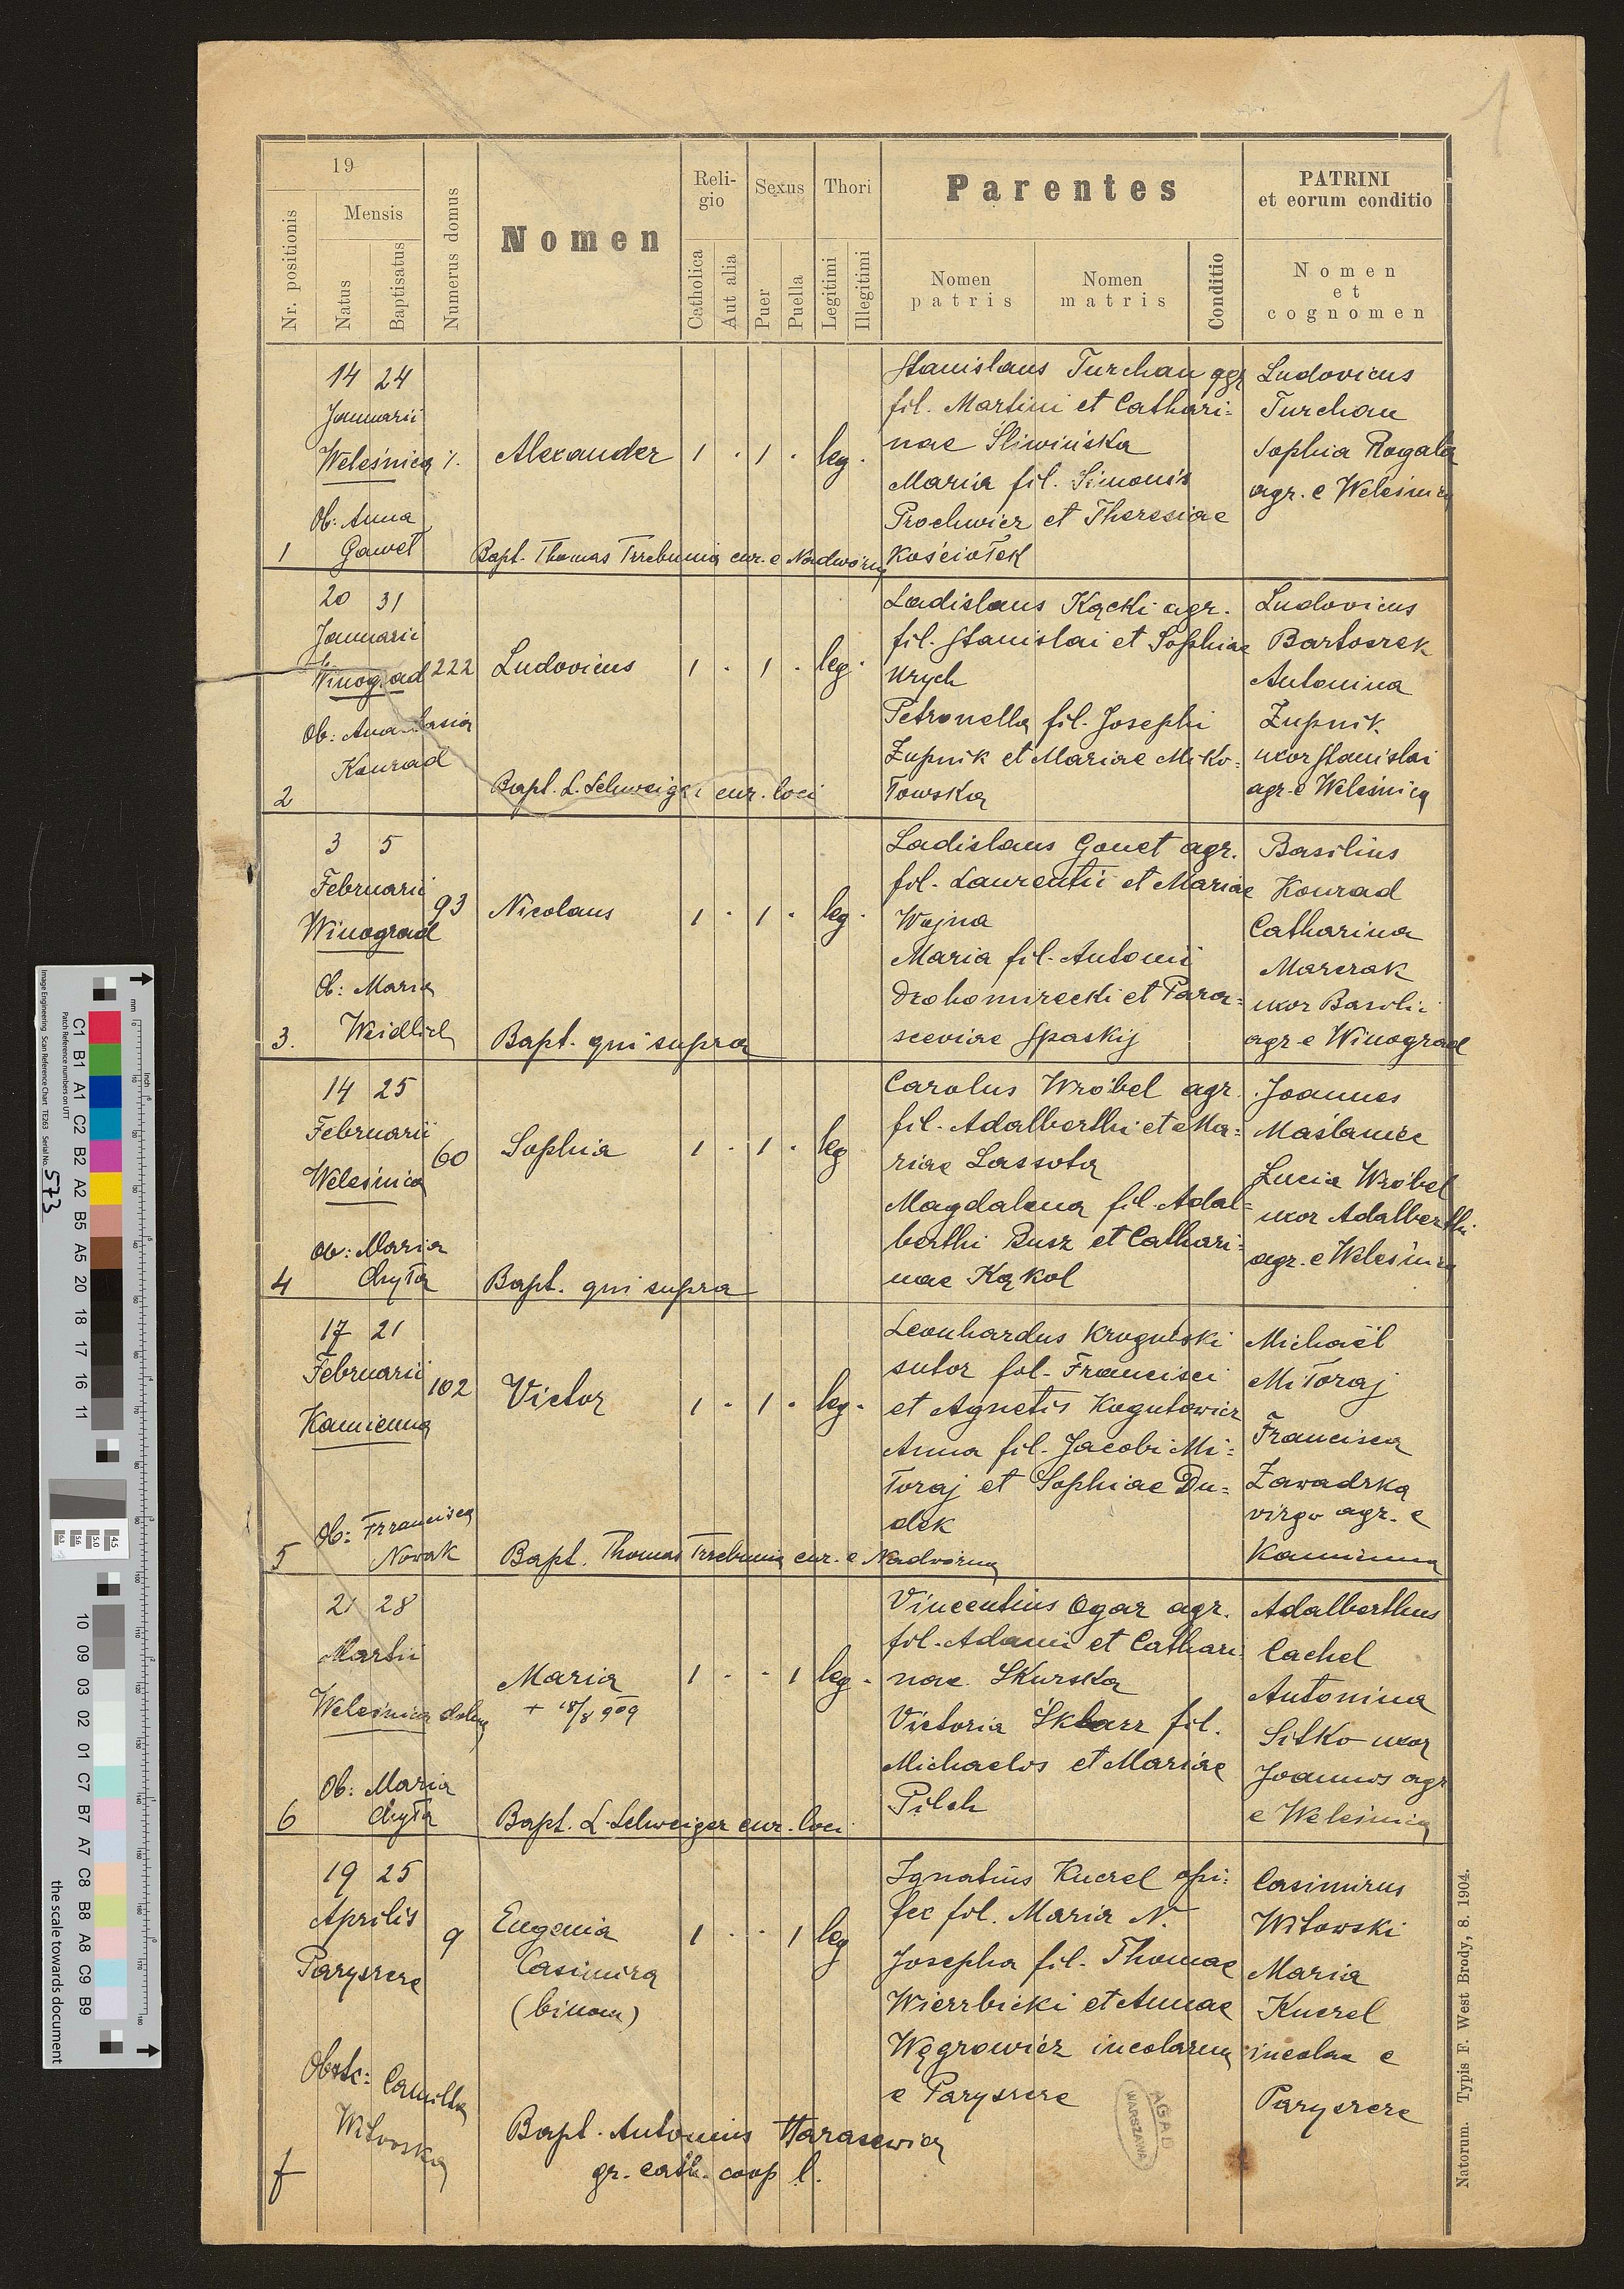 1
19
Mensis
Nr. positionis
Natus
Baptisatus
Numerus domus
Nomen
Religio
Catholica
Aut alia
Sexus
Puer
Puella
Thori
Legitimi
Illegitimi
Parentes
Nomen patris
Nomen matris
Conditio
PATRINI
et eorum conditio
Nomen
et
cognomen
14 24
Januarii
Weleśnica
Ob: Anna
Gaweł
1
Alexander 1 . 1 . leg.
Bapt. Thomas Trzebunia cur. e Nadwórna
Stanislaus Turchan agr
fil. Martini et Cathari=
nae Śliwińska
Maria fil. Simonis
Prochwicz et Theresiae
Kościołek
Ludovicus
Turchan
Sophia Rogala
agr. e Weleśnica
20 31
Januarii
Winograd
Ob: Anastasia
Konrad
2
222
Ludovicus 1 . 1 . leg.
Bapt. L. Schweiger cur. loci
Ladislaus Kącki agr.
fil. Stanislai et Sophiae
Urych
Petronella fil. Josephi
Żupnik et Mariae Miko=
łowska
Ludovicus
Bartoszek
Antonina
Żupnik
uxor Stanislai
agr. e Weleśnica
3 5
Februarii
Winograd
Ob: Maria
Weidlich
3.
93
Nicolaus 1 . 1 . leg.
Bapt. qui supra
Ladislaus Gonet agr.
fil. Laurentii et Mariae
Wojna
Maria fil. Antonii
Drohomirecki et Para=
sceviae Spaskij
Basilius
Konrad
Catharina
Marczak
uxor Basilii
agr. e Winograd
14 25
Februarii
Weleśnica
Ob: Maria
Chyła
4
60
Sophia 1 . 1 . leg
Bapt. qui supra
Carolus Wróbel agr.
fil. Adalberthi et Ma=
riae Lassota
Magdalena fil. Adal=
berthi Busz et Cathari=
nae Kąkol
Joannes
Maślaniec
Lucia Wróbel
uxor Adalberthi
agr. e Weleśnica
17 21
Februarii
Kamienna
Ob: Francisca
Nowak
5
102
Victor 1 . 1 . leg.
Bapt. Thomas Trzebunia cur. e Nadwórna
Leonhardus Krogulski
sutor fil. Francisci
et Agnetis Kogutowicz
Anna fil. Jacobi Mi=
toraj et Sophiae Du=
dek
Michaël
Mitoraj
Francisca
Zawadzka
virgo agr. e
Kamienna
21 28
Martii
Weleśnica dolna
Ob: Maria
Chyła
6
Maria 1 . . 1 leg.
+ 18/8 909
Bapt. L. Schweiger cur. loci
Vincentius Ogar agr.
fil. Adami et Cathari
nae Skurska
Victoria Sklarz fil.
Michaelis et Mariae
Pilch
Adalberthus
Cachel
Antonina
Sitko uxor
Joannis agr
e Weleśnica
19 25
Aprilis
Paryszcze
Obste: Camilla
Witowska
7
9
Eugenia 1 . . 1 leg
Casimira
(binom)
Bapt. Antonius Harasewicz
gr. cath. coop l.
Ignatius Kuczel opi=
fex fil. Maria N.
Josepha fil. Thomae
Wierzbicki et Annae
Węgrowicz incolarum
e Paryszcze
Casimirus
Witowski
Maria
Kuczel
incolae e
Paryszcze
AGAD
WARSZAWA
Natorum. Typis F. West Brody, 8. 1904.
Image Engineering Scan Reference Chart TE263 Serial No. 573
Patch Reference numbers on UTT
C1 B1 A1 C2 B2 A2 B5 A5 20 18 17 16 11
10 09 03 02 01 C7 B7 A7 C8 B8 A8 C9 B9
mm
inch
the scale towards document